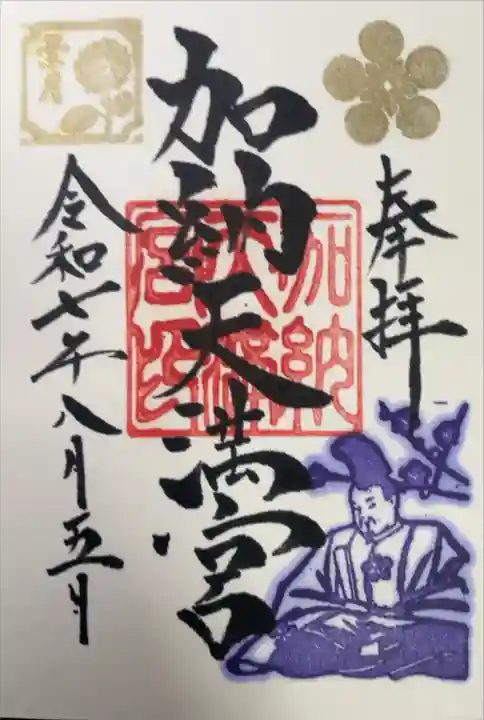 奉拝
加納天満宮
加納
天満
宮印
令和七年八月五日
葉月